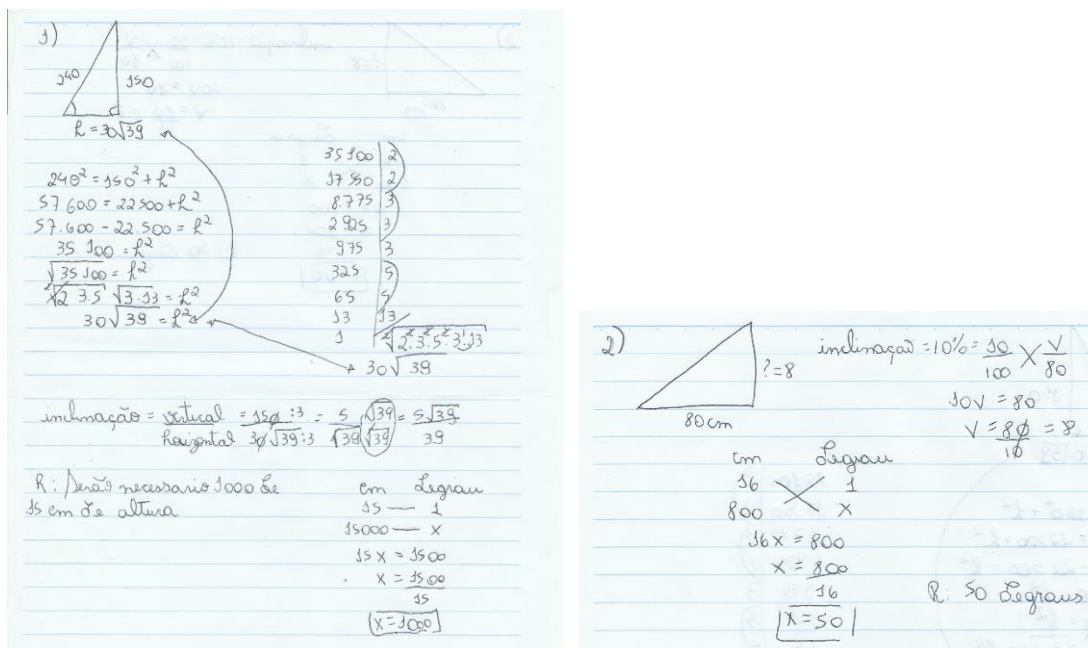 1)
240
150
h = 30√39
240² = 150² + h²
57 600 = 22500 + h²
57.600 - 22.500 = h²
35.100 = h²
√35100 = h²
√2 3.5 √3.13 = h²
30√39 = h²
35100 | 2
17550 | 2
8.775 | 3
2 925 | 3
975 | 3
325 | 5
65 | 5
13 | 13
1 | √2².3².5².3¹.13
30√39
inclinação = vertical = 150 :3 = 5 . √39 = 5√39
horizontal 30√39 :3 √39 √39 39
R: Serão necessario 1000 de
15 cm de altura
cm degrau
15 — 1
15000 — x
15x = 1500
x = 1500
15
x = 1000
2)
? = 8
80cm
inclinação = 10% = 10 X V
100 80
10V = 80
V = 80 = 8
10
cm degrau
16 1
800 x
16x = 800
x = 800
16
x = 50
R: 50 degraus